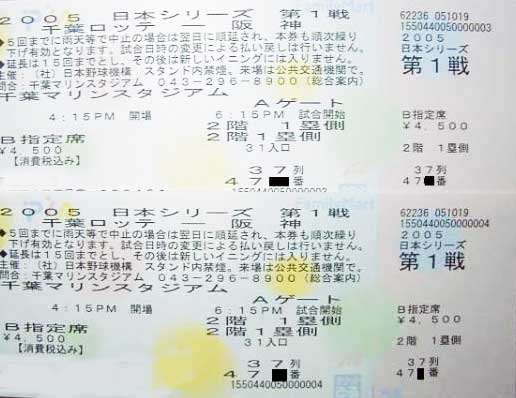 2005 日本シリーズ 第1戦
千葉ロッテ ー 阪 神
◆5回までに雨天等で中止の場合は翌日に順延され、本券も順次繰り
下げ有効となります。試合日時の変更による払い戻しは行いません。
◆延長は15回までとし、その後は新しいイニングには入りません。
主催：（社）日本野球機構 スタンド内禁煙。来場は公共交通機関で。
問合：千葉マリンスタジアム 043-296-8900（総合案内）
千葉マリンスタジアム
Aゲート
4:15PM 開場 6:15PM 試合開始
B指定席 2階 1塁側
¥4,500 2階 1塁側
【消費税込み】 31入口
37列
47 番
62236 051019
1550440050000003
2005
日本シリーズ
第1戦
B指定席
¥4,500
2階 1塁側
37列
47 番
FamilyMart
2005 日本シリーズ 第1戦
千葉ロッテ ー 阪 神
◆5回までに雨天等で中止の場合は翌日に順延され、本券も順次繰り
下げ有効となります。試合日時の変更による払い戻しは行いません。
◆延長は15回までとし、その後は新しいイニングには入りません。
主催：（社）日本野球機構 スタンド内禁煙。来場は公共交通機関で。
問合：千葉マリンスタジアム 043-296-8900（総合案内）
千葉マリンスタジアム
Aゲート
4:15PM 開場 6:15PM 試合開始
B指定席 2階 1塁側
¥4,500 2階 1塁側
【消費税込み】 31入口
37列
47 番
1550440050000004
62236 051019
1550440050000004
2005
日本シリーズ
第1戦
B指定席
¥4,500
2階 1塁側
37列
47 番